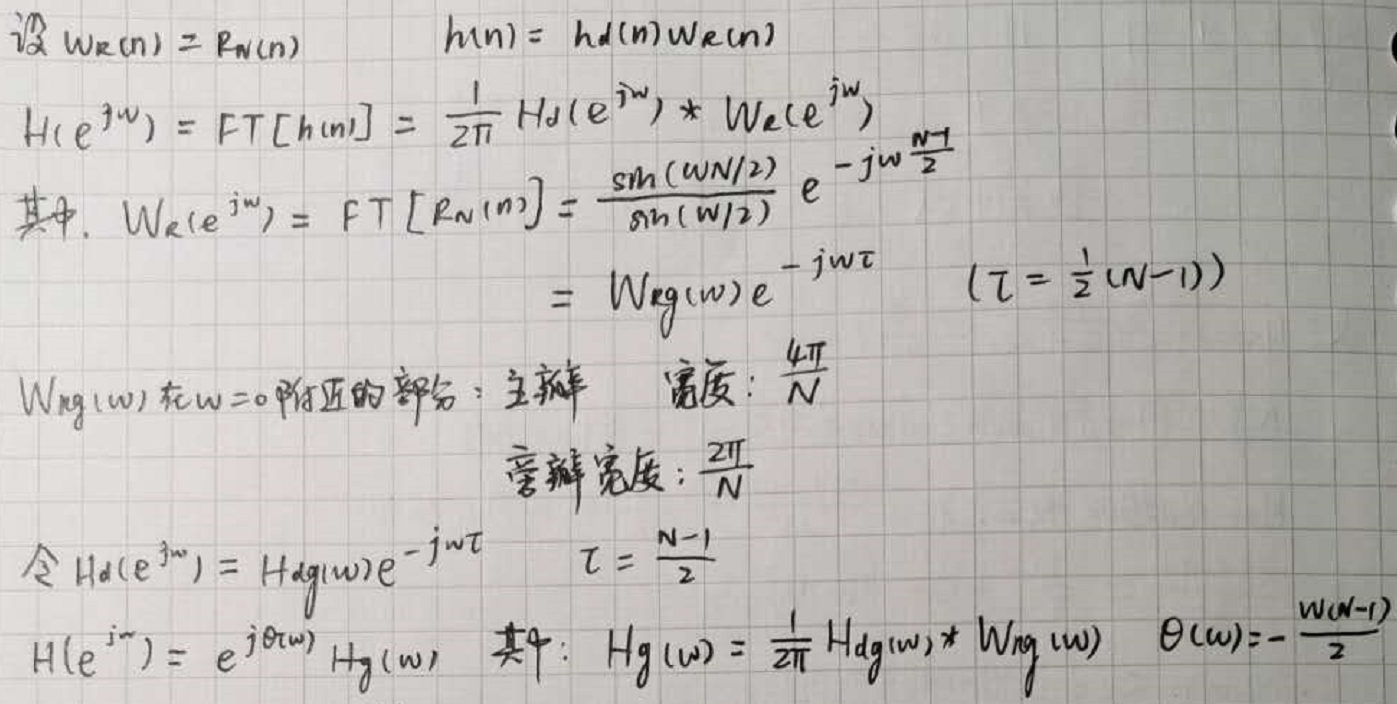 设 WR(n) = RN(n) h(n) = hd(n)WR(n)
H(e^jω) = FT[h(n)] = 1/2π Hd(e^jω) * WR(e^jω)
其中. WR(e^jω) = FT[RN(n)] = sin(ωN/2)/sin(ω/2) e^-jω(N-1)/2
= WRg(ω)e^-jωτ (τ = 1/2(N-1))
WRg(ω)在ω=0附近的部分：主瓣 宽度：4π/N
旁瓣宽度：2π/N
令 Hd(e^jω) = Hdg(ω)e^-jωτ τ = N-1/2
H(e^jω) = e^jθ(ω) Hg(ω) 其中: Hg(ω) = 1/2π Hdg(ω) * WRg(ω) θ(ω)=-ω(N-1)/2